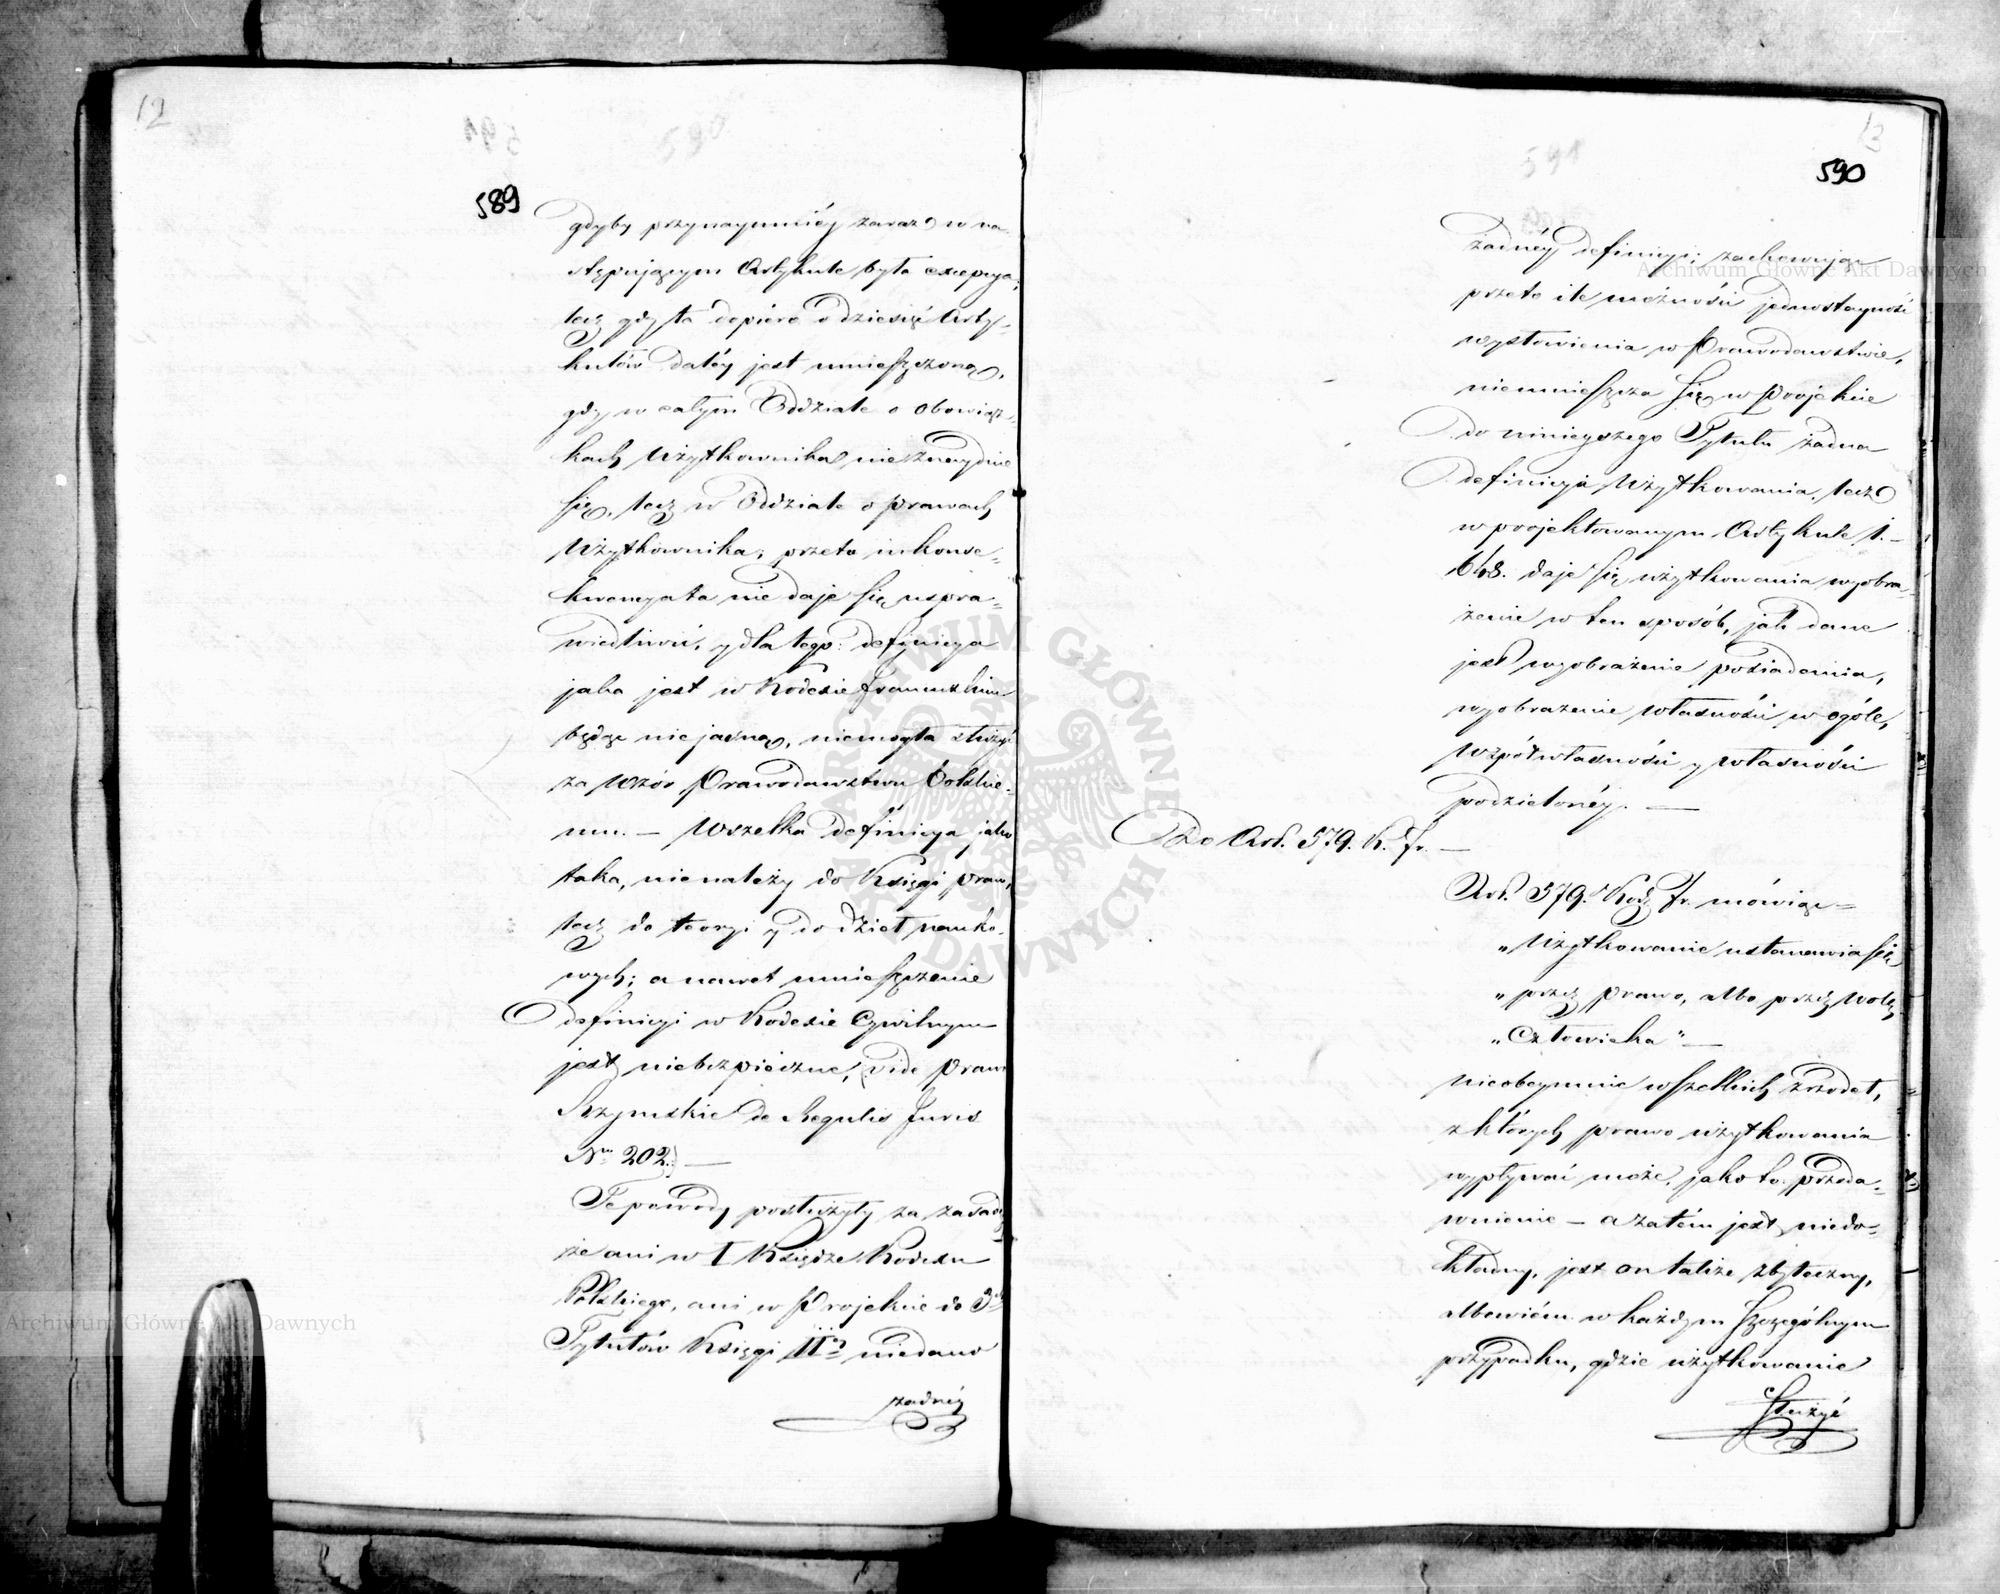 12
589
gdyby przynaymniéy zaraz w na-
stępuiącym Artykule była excepcya;
lecz gdy ta dopiéro o dziesięć Arty-
kułów daléy jest umieszczona,
gdy w całym Oddziale o obowiąz-
kach Użytkownika nie znayduie
się, lecz w Oddziale o prawach
Użytkownika; przeto inkonse-
kwencya ta nie daje się uspra-
wiedliwić, y dla tego: definicya
jaka jest w Kodexie francuskim
będąc niejasną, niemogła służyć
za wzór Prawodawstwu Polskie-
mu. — Wszelka definicya jako
taka, nienależy do Księgi praw,
lecz do teoryi y do dzieł nauko-
wych; a nawet umieszczenie
definicyi w Kodexie Cywilnym
jest niebezpieczne, (vide prawo
Rzymskie de Regulis Juris
Nro 202.) —
Te powody posłużyły za zasadę
że ani w I Księdze Kodexu
Polskiego, ani w Projekcie do 3ch
Tytułów Księgi IIéy niedano
żadnéy
13
590
żadnéy definicyi; zachowując
przeto ile możności jednostayność
wysłowienia w Prawodawstwie,
nieumieszcza się w Projekcie
do ninieyszego Tytułu żadna
definicyia Użytkowania, lecz
w projektowanym Artykule 1.—
648. daje się użytkowania wyobra-
żenie w ten sposób, jak dane
jest wyobrażenie posiadania,
wyobrażenie własności w ogóle,
Współwłasności y własności
podzielonéy. —
Do Art. 579. K. fr. —
Art. 579. Kod. fr. mówiąc =
„Użytkowanie ustanawia się
„przez prawo, albo przez wolę
„Człowieka" —
nieobeymuie wszelkich źrzodeł,
z których prawo użytkowania
wypływać może, jako to: przeda-
wnienie — a zatém jest niedo-
kładny, jest on także zbyteczny,
albowiém w każdym szczególnym
przypadku, gdzie użytkowanie
służyć
Archiwum Główne Akt Dawnych
Archiwum Główne Akt Dawnych
ARCHIWUM GŁÓWNE AKT DAWNYCH